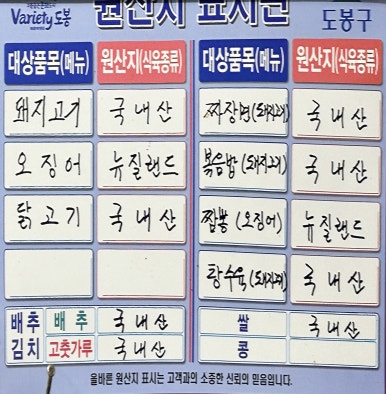 Variety 도봉
원산지 표시판
도봉구
대상품목(메뉴) 원산지(식육종류)
돼지고기 국내산
오징어 뉴질랜드
닭고기 국내산
배추김치 배추 국내산
고춧가루 국내산
대상품목(메뉴) 원산지(식육종류)
짜장면(돼지고기) 국내산
볶음밥(돼지고기) 국내산
짬뽕(오징어) 뉴질랜드
탕수육(돼지고기) 국내산
쌀 국내산
콩
올바른 원산지 표시는 고객과의 소중한 신뢰의 믿음입니다.